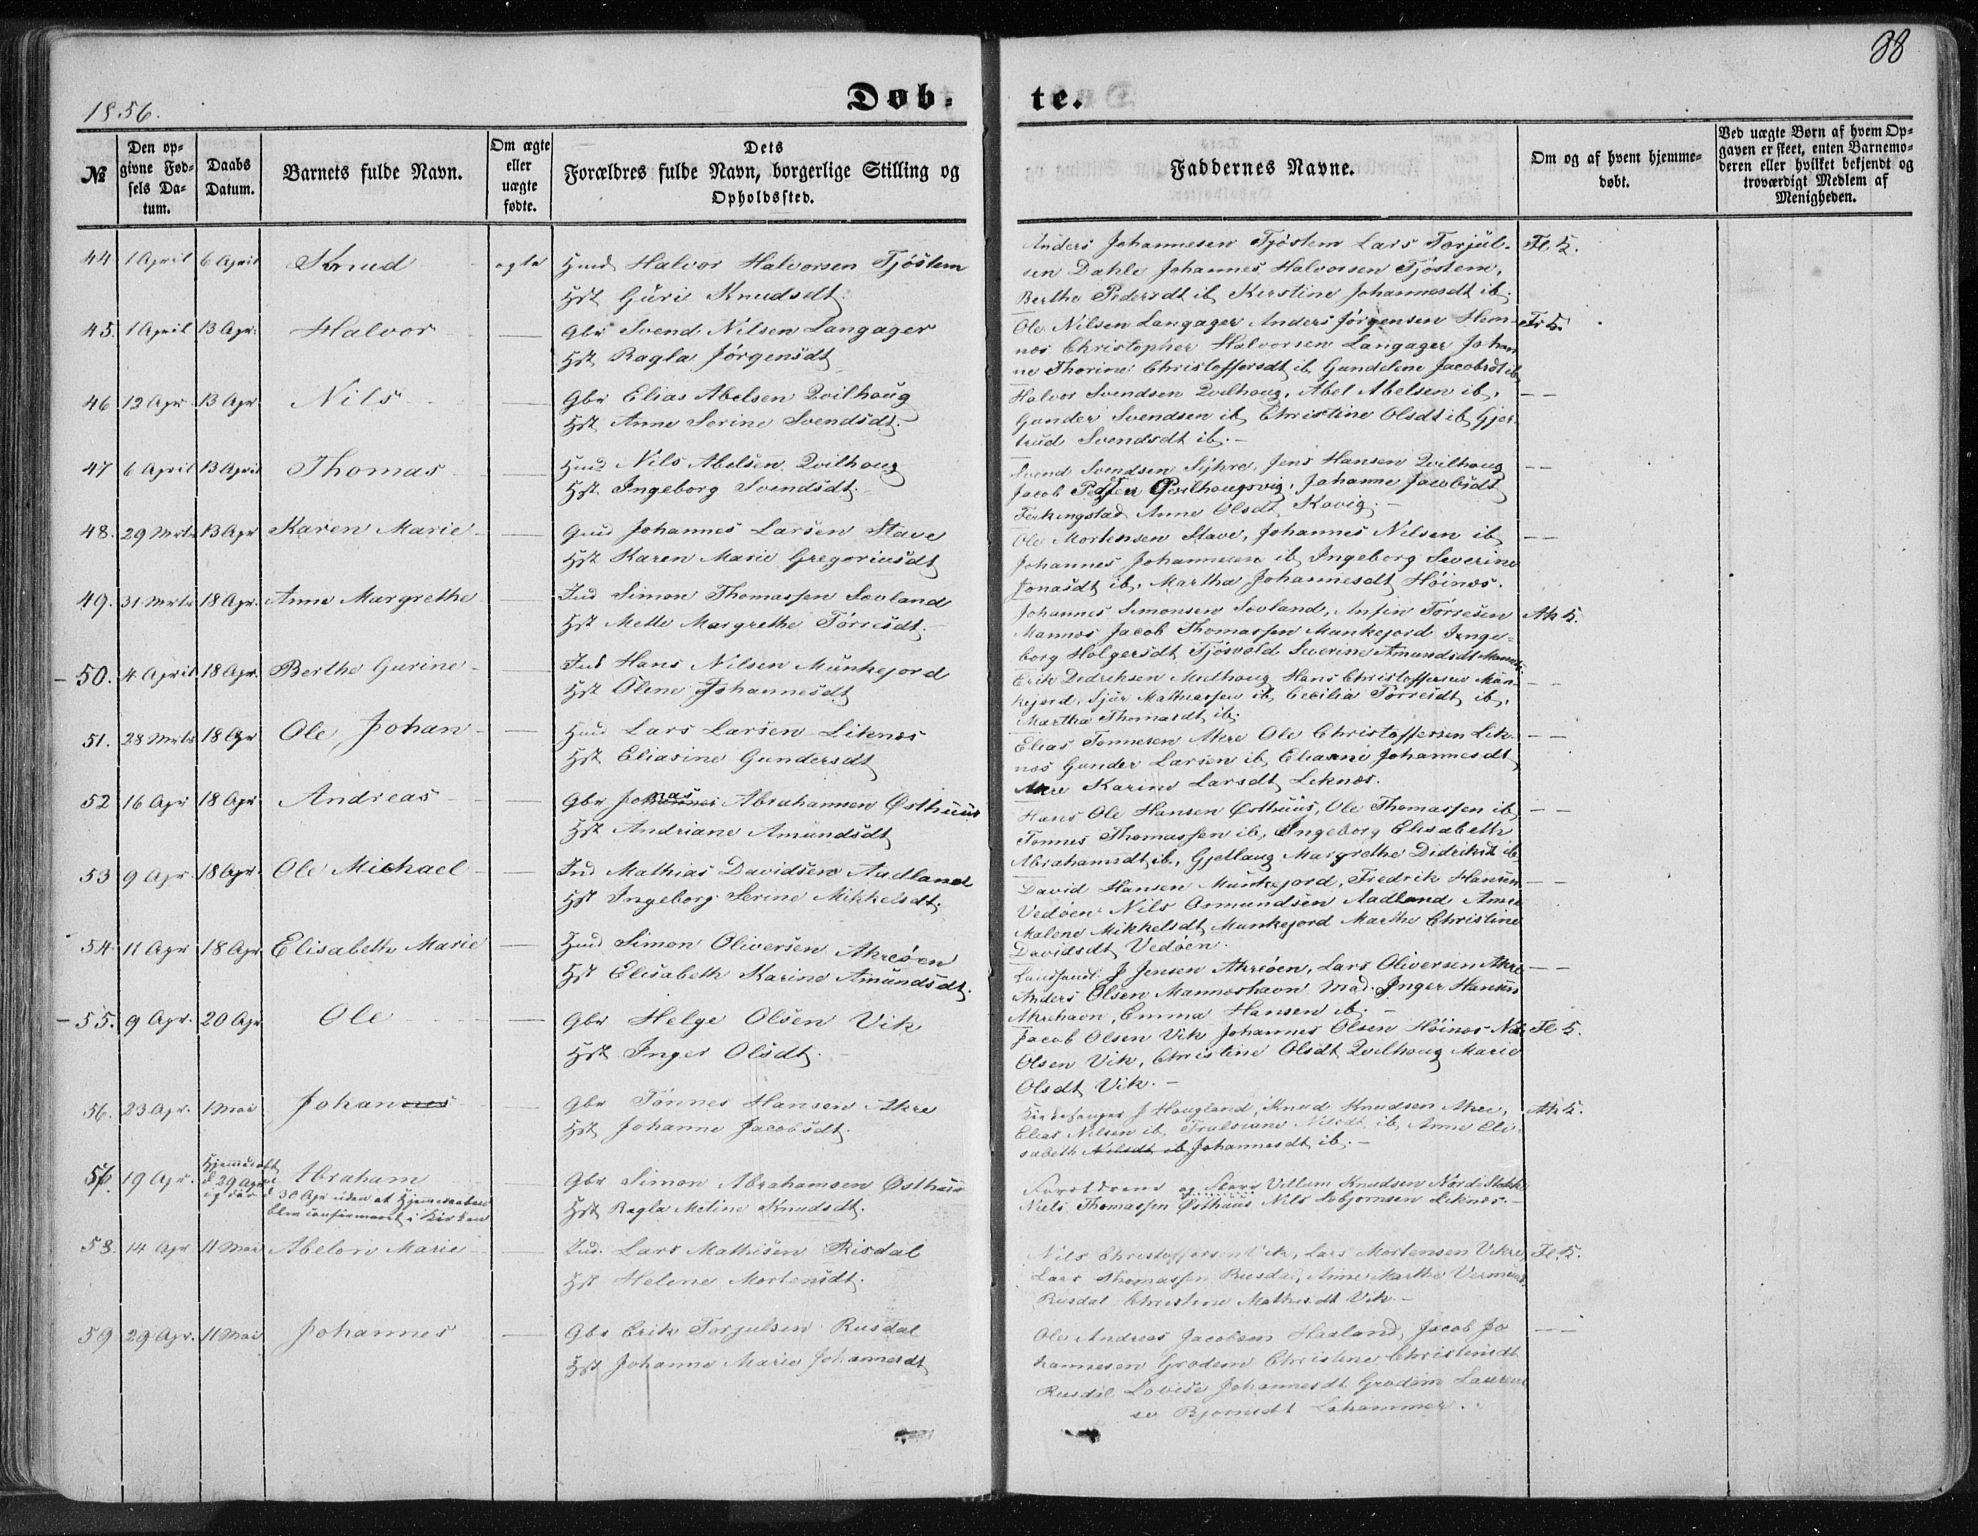 1856.
Døb-
te.
88
№
Den op-
givne Fød-
sels Da-
tum.
Daabs
Datum.
Barnets fulde Navn.
Om ægte
eller
uægte
fødte.
Dets
Forældres fulde Navn, borgerlige Stilling og
Opholdssted.
Faddernes Navne.
Om og af hvem hjemme-
døbt.
Ved uægte Børn af hvem Op-
gaven er skeet, enten Barnemo-
deren eller hvilket bekjendt og
troværdigt Medlem af
Menigheden.
44 1 April 6 April Knud ægte Halvor Halvorsen Tjøstem
Hst Guri Knudsdt.
Anders Johannesen Tjøstem Lars Torjul-
sen Dahle Johannes Halvorsen Tjøstem,
Berthe Pedersdt ib, Kerstine Johannesdt ib.
Fl K.
45. 1 April 13 Apr. Halvor Gbr Svend Nilsen Langager
Hst Ragla Jørgensdt
Ole Nilsen Langager Anders Jørgensen Hem-
nes Christopher Halvorsen Langager Johan
ne Thorine Christoffersdt ib, Gundelene Jacobsdt ib
46 12 Apr 13 Apr. Nils Gbr Elias Abelsen Qvilhaug
Hst Anne Serine Svendsdt.
Halvor Svendsen Qvilhaug, Abel Abelsen ib,
Gunder Svendsen ib, Christine Olsdt ib, Gjer-
trud Svendsdt ib. -
47 6 April 13 April Thomas Nils Abelsen Qvilhaug
Hst. Ingeborg Svendsdt.
Svend Svendsen Syhre, Jens Hansen Qvilhaug
Jacob Qvilhaugsvig, Johanne Jacobsdt
Ferkingstad Anne Olsdt Kovig. -
48. 29 Mrts 13 Apr Karen Marie Johannes Larsen Stave
Hst Karen Marie Gregoriusdt
Ole Mortensen Stave, Johannes Nilsen ib
Johannes Johannesen ib Ingeborg Severine
Jonasdt ib, Martha Johannesdt Høines.
49. 31 Mrts 18 Apr. Anne Margrethe Ind Simon Thomassen Sævland
Hst Mette Margrethe Torresdt.
Johannes Simonsen Sævland, Anfin Torresen
Mannes Jacob Thomassen Munkejord Inge-
borg Holgersdt Tjøsvold Severine Amundsdt
Ak K.
50. 4 April 18 Apr. Berthe Gurine Ind Hans Nilsen Munkejord
Hst Olene Johannesdt
Erik Dedriksen Medhaug Hans Christoffersen Mun-
kejord, Sjur Mathiassen ib Cecilia Torresdt ib,
Martha Thomasdt ib.
51. 28 Mrts 18 Apr Ole Johan Lars Larsen Liknes
Hst Eliasine Gundersdt
Elias Tønnesen Akre Ole Christoffersen Lik-
nes Gunder Larsen ib, Eliasine Johannesdt
Akre Karine Larsdt Liknes.
52 16 Apr 18 Apr. Andreas Gbr Jonas Abrahamsen Østhuus
Hst Andriane Amundsdt
Hans Ole Hansen Østhuus, Ole Thomassen ib
Tønnes Thomassen ib, Ingeborg Elisabeth
Abrahamsdt ib, Gjellaug Margrethe Didriksdt ib
53 9 Apr 18 Apr. Ole Michael Ind Mathias Davidsen Aadland
Hst Ingeborg Serine Mikkelsdt.
David Hansen Munkejord, Fredrik Hansen
Vedøen Nils Osmundsen Aadland Anne
Malene Mikkelsdt Munkejord Marthe Christine
Davidsdt Vedøen.
54. 11 Apr 18 Apr Elisabeth Marie Simon Oliversen Akreøen
Hst Elisabeth Karine Amundsdt.
J Jensen Akreøen, Lars Oliversen Akre
Anders Olsen Manneshavn Mad. Inger Hansen
Akrehavn, Emma Hansen ib. -
55. 9 Apr. 20 Apr Ole Gbr Helge Olsen Vik
Hst Inger Olsdt.
Jacob Olsen Vik Johannes Olsen Høines Nils
Olsen Vik, Christine Olsdt Qvilhaug Marie
Olsdt Vik. -
Fl K.
56. 23 Apr. 1 Mai Johannes Gbr Tønnes Hansen Akre
Hst Johanne Jacobsdt.
Kirkesanger J Haugland, Knud Knudsen Akre,
Elias Nilsen ib, Nilsdt ib, Anne Eli-
sabeth Nilsdt ib Johannesdt ib. -
Ak K.
57. 19 Apr. Hjemmedøbt d 29 Apr Abraham
30 Apr uden at Hjemmedaaben
blev confirmeret i Kirken
Gbr Simon Abrahamsen Østhuus
Hst Ragla Metine Knudsdt.
Forældrene og Villum Knudsen Nordre
Niels Thomassen Østhuus Nils Liknes. -
58. 14 Apr 11 Mai Abelon Marie Ind. Lars Mathisen Risdal
Hst Helene Mortensdt.
Nils Christoffersen Vik, Lars Mortensen Vikre
Lars Thomassen Rusdal, Anne Marthe
Rusdal Christine Mathisdt Vik -
Fl. K.
59 29 Apr. 11 Mai Johannes Gbr Erik Torjulsen Rusdal
Hst Johanne Marie Johannesdt
Ole Andreas Jacobsen Haaland, Jacob Jo
hannesen Grødem Christine Christensdt
Rusdal Lovise Johannesdt Grødem
Bjørnsdt Lahammer.